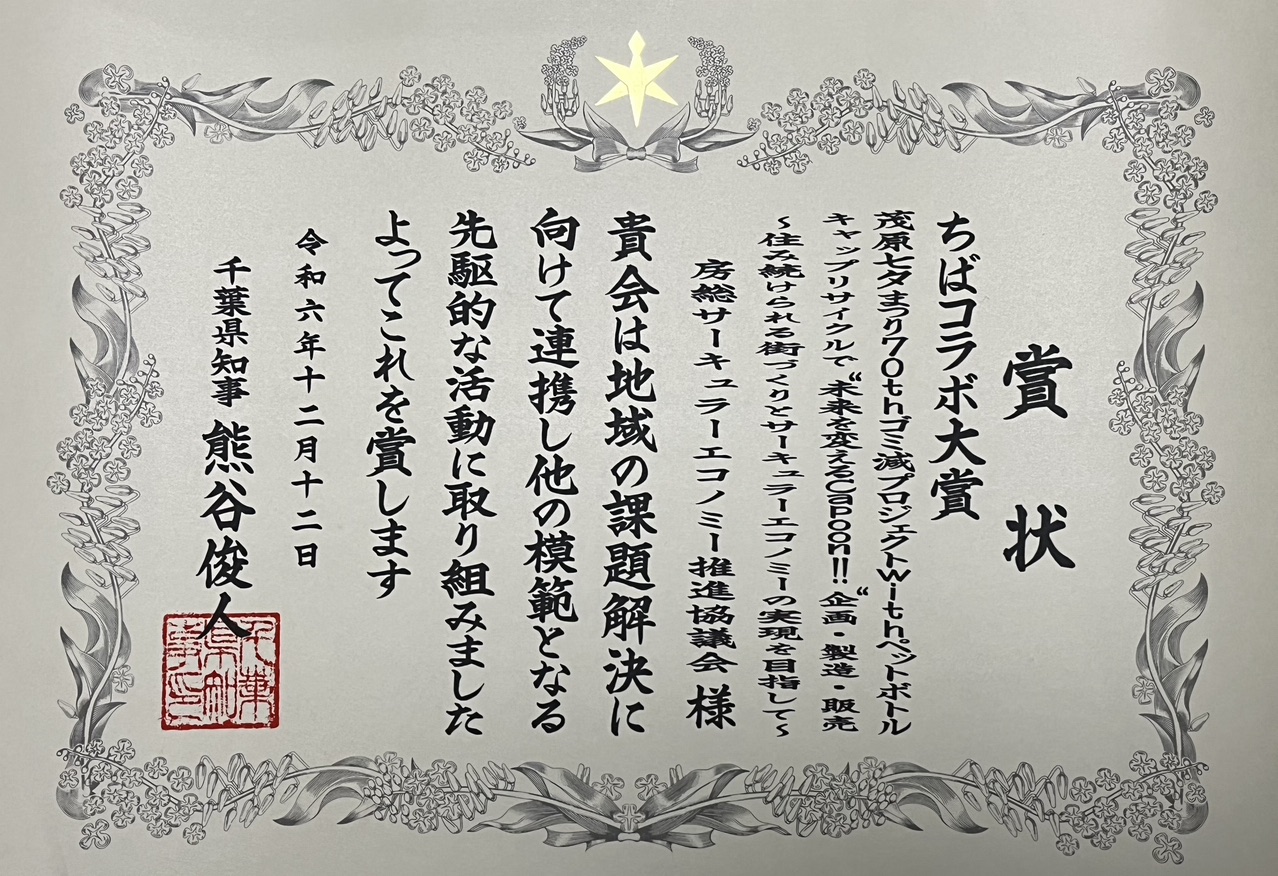 賞状
ちばコラボ大賞
茂原七夕まつり70thゴミ減プロジェクトwithペットボトル
キャップリサイクルで“未来を変えるCapoon!!“企画・製造・販売
~住み続けられる街づくりとサーキュラーエコノミーの実現を目指して~
房総サーキュラーエコノミー推進協議会 様
貴会は地域の課題解決に
向けて連携し他の模範となる
先駆的な活動に取り組みました
よってこれを賞します
令和六年十二月十二日
千葉県知事 熊谷俊人
千葉県知事印